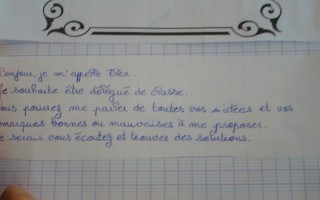 Bonjour, je m'appelle
Je souhaite être délégué de classe.
Vous pouvez me parler de toutes vos idées et vos
remarques bonnes ou mauvaises à me proposer.
Je serais vous écoutez et trouver des solutions.